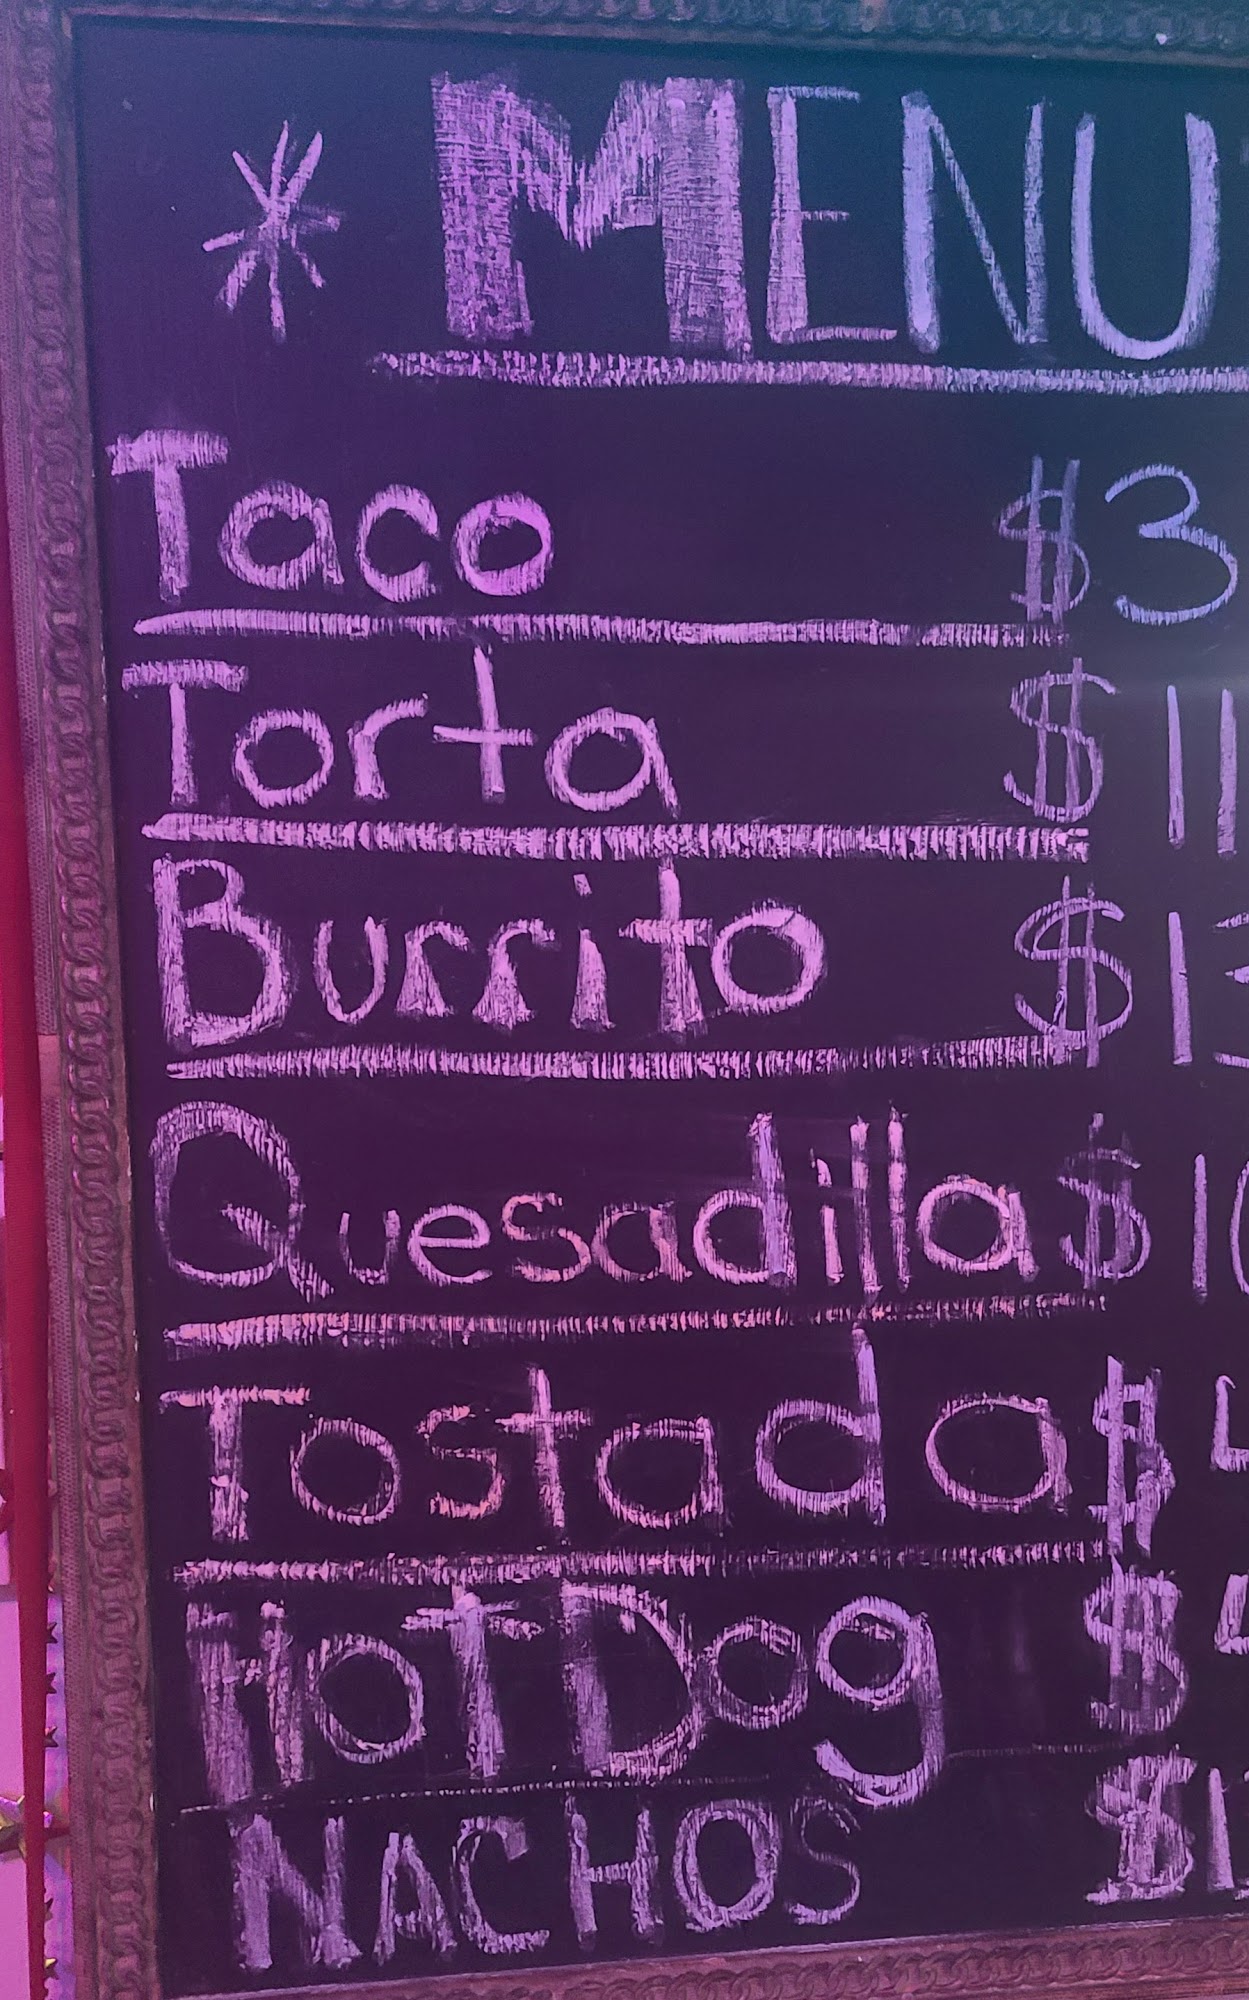 * MENU
Taco $3
Torta $11
Burrito $13
Quesadilla $10
Tostada $4
Hot Dog $
NACHOS $1